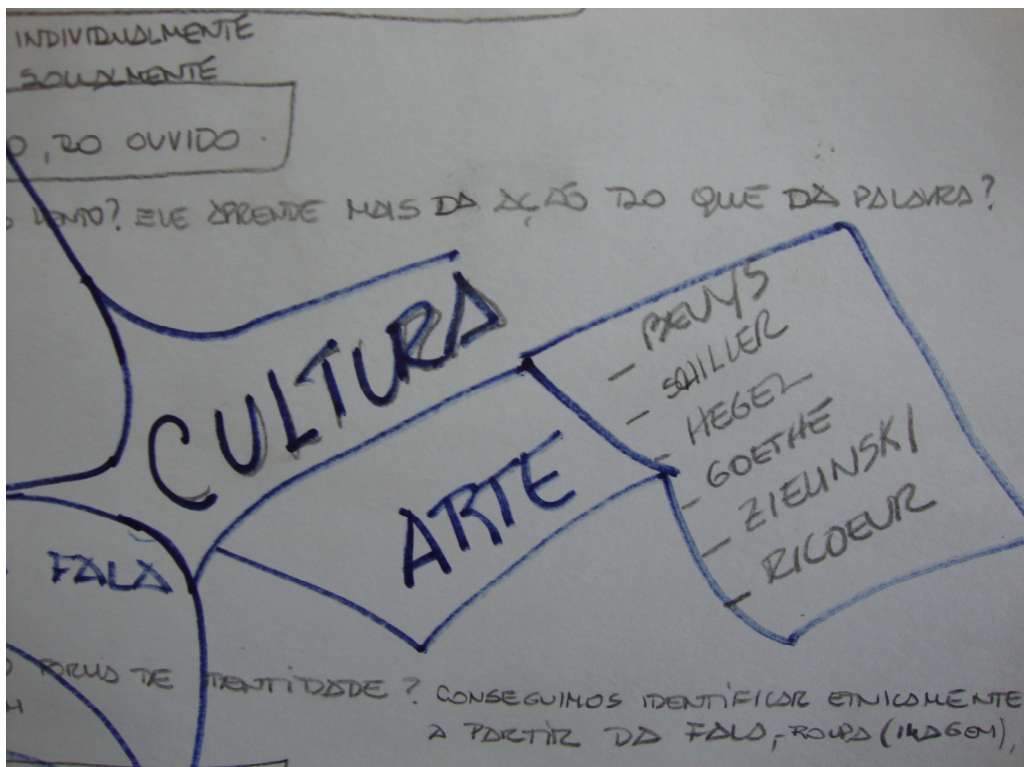 INDIVIDUALMENTE
SOCIALMENTE
O, DO OUVIDO.
LENTO? ELE APRENDE MAIS DA AÇÃO DO QUE DA PALAVRA?
CULTURA
ARTE
- BEUYS
- SCHILLER
- HEGEL
- GOETHE
- ZIELINSKI
- RICOEUR
FALA
FORMA DE IDENTIDADE? CONSEGUIMOS IDENTIFICAR ETNICAMENTE
A PARTIR DA FALA, ROUPA (IMAGEM),